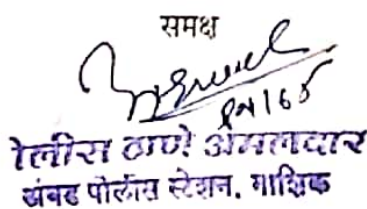 समक्ष
PN 165
पोलीस ठाणे अंमलदार
अंबड पोलीस स्टेशन. नाशिक